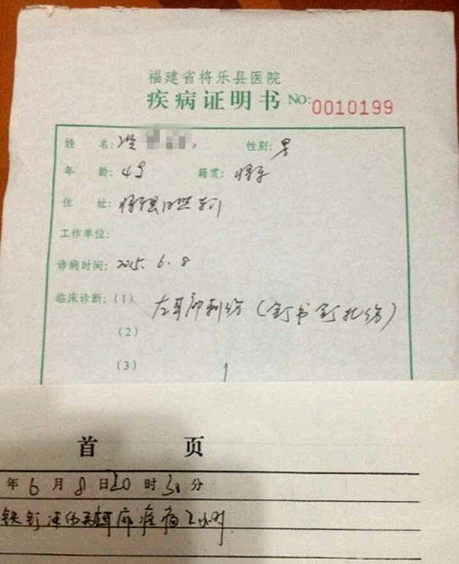 福建省将乐县医院
疾病证明书 NO:0010199
姓 名: 性别:男
年 龄:4岁 籍贯:将乐
住 址:将乐县
工作单位:
诊病时间:2015.6.8
临床诊断:(1) 左耳廓刺伤(钉书钉扎伤)
(2)
(3)
首 页
年6月8日20时30分
耳廓疼痛